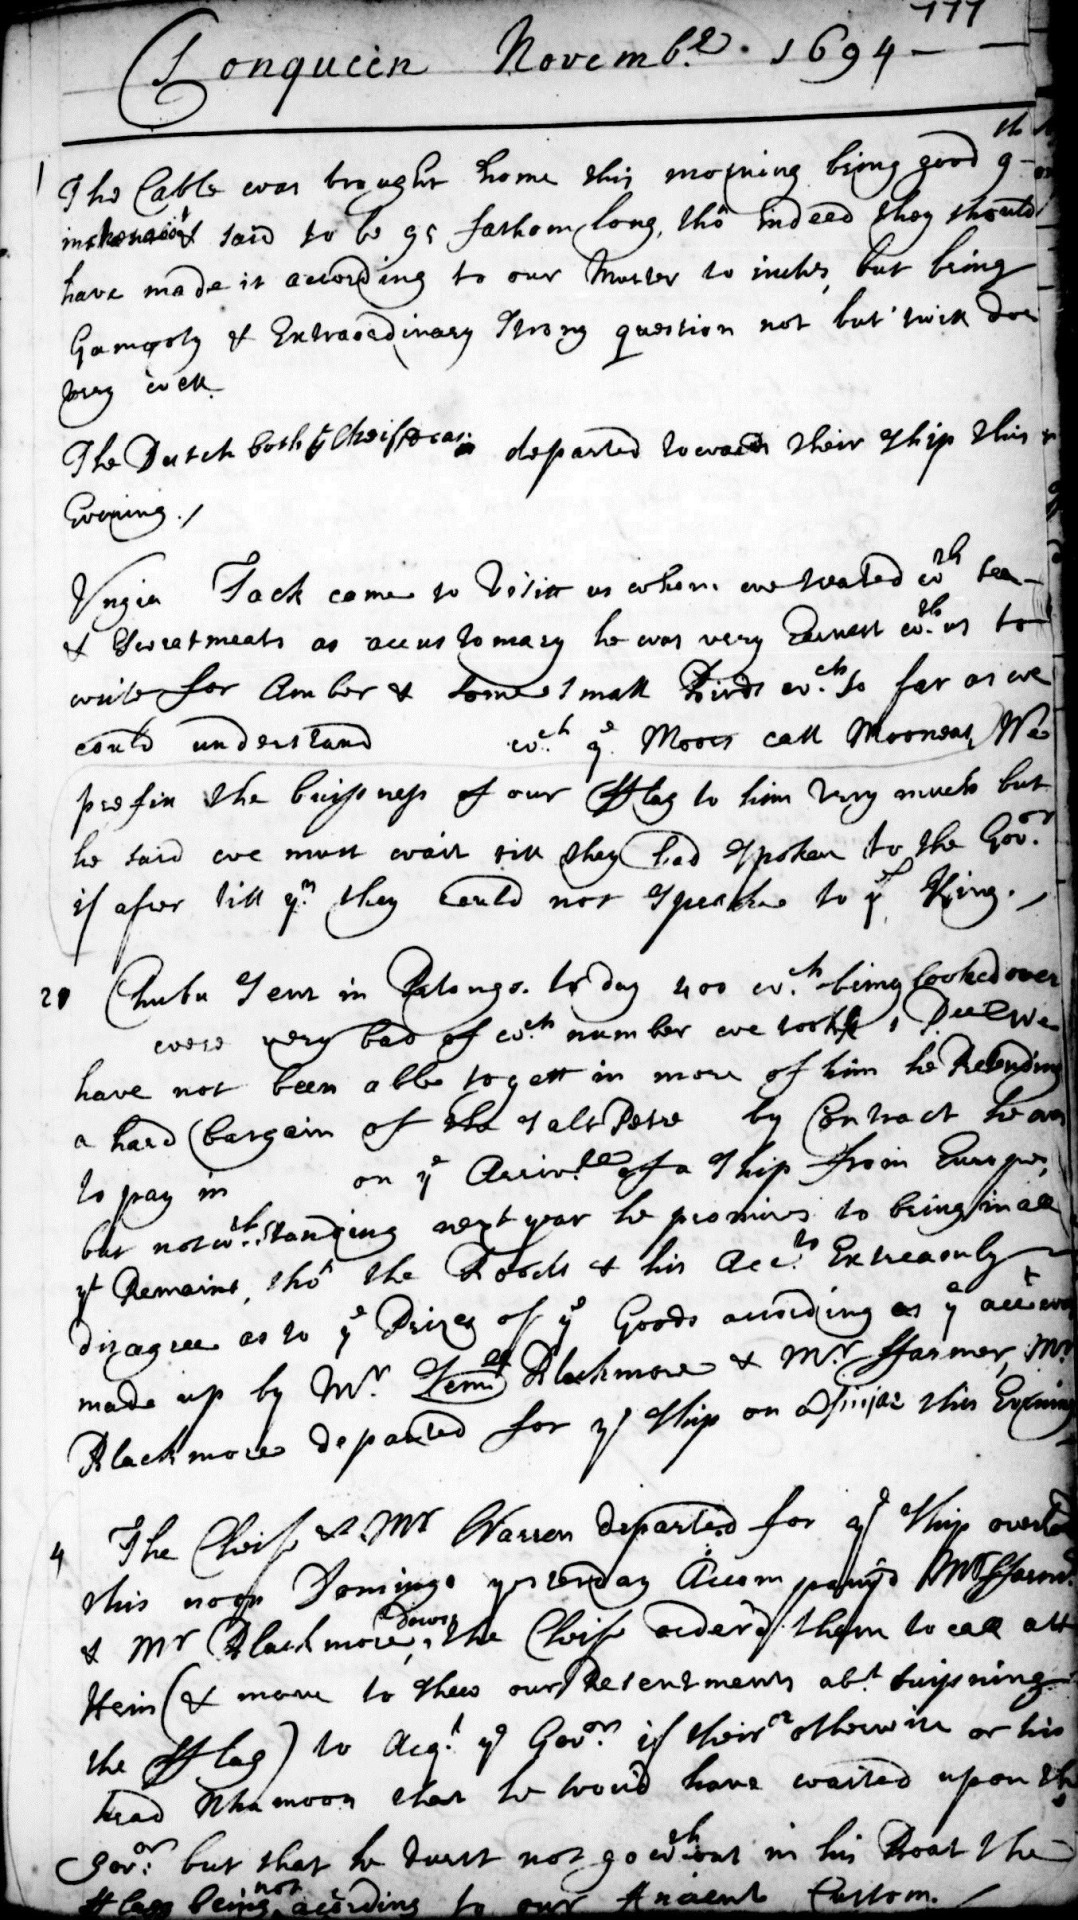 777
Tonqueen Novembr. 1694
1 The Cable was brought home this morning being good 9
inches & said to be 95 fathom long, tho indeed they should
have made it according to our Muster 10 inches, but being
Gamooty & Extraordinary Strong question not but twill doe
very well.
The Dutch both ye Cheifs departed towards their Ship this
Evening./
Ungia Tack came to visitt us whom we treated wth tea
& Sweetmeats as accustomary he was very Earnest wth us to
write for Amber & some small Birds wch so far as we
could understand wch ye Moors call Mooneas, We
press'd the buissness of our fflag to him very much but
he said we must wait till they had Spoken to the Govor
if after till yn they could not Speake to ye King./
2d Chubu Sent in Pelongs to day 400 wch being looked over
were very bad of wch number we took We
have not been able to gett in more of him he
a hard bargain of the Salt Petre by Contract he was
to pay in on ye Arrivll of a Ship from Europe,
but notwthstanding next year he promises to bring in all
yt Remains, tho the Books & his Accts Extreamly
disagree as to ye Prizes of ye Goods according as ye acct was
made up by Mr. Blackmore & Mr. ffarmer, Mr
Blackmore departed for ye Ship on this Evening
4 The Cheif & Mr Warren departed for ye Ship
this noon Domingo yesterday Accompanyd Mr ffarmr
& Mr Blackmore down, the Cheif order'd them to call att
Hein (& more to shew our Resentments abt
the fflag) to Acqt ye Govor if their otherwise or his
head that he would have waited upon the
Govor: but that he durst not go wthout in his Boat the
fflagg being not according to our Ancient Custom./